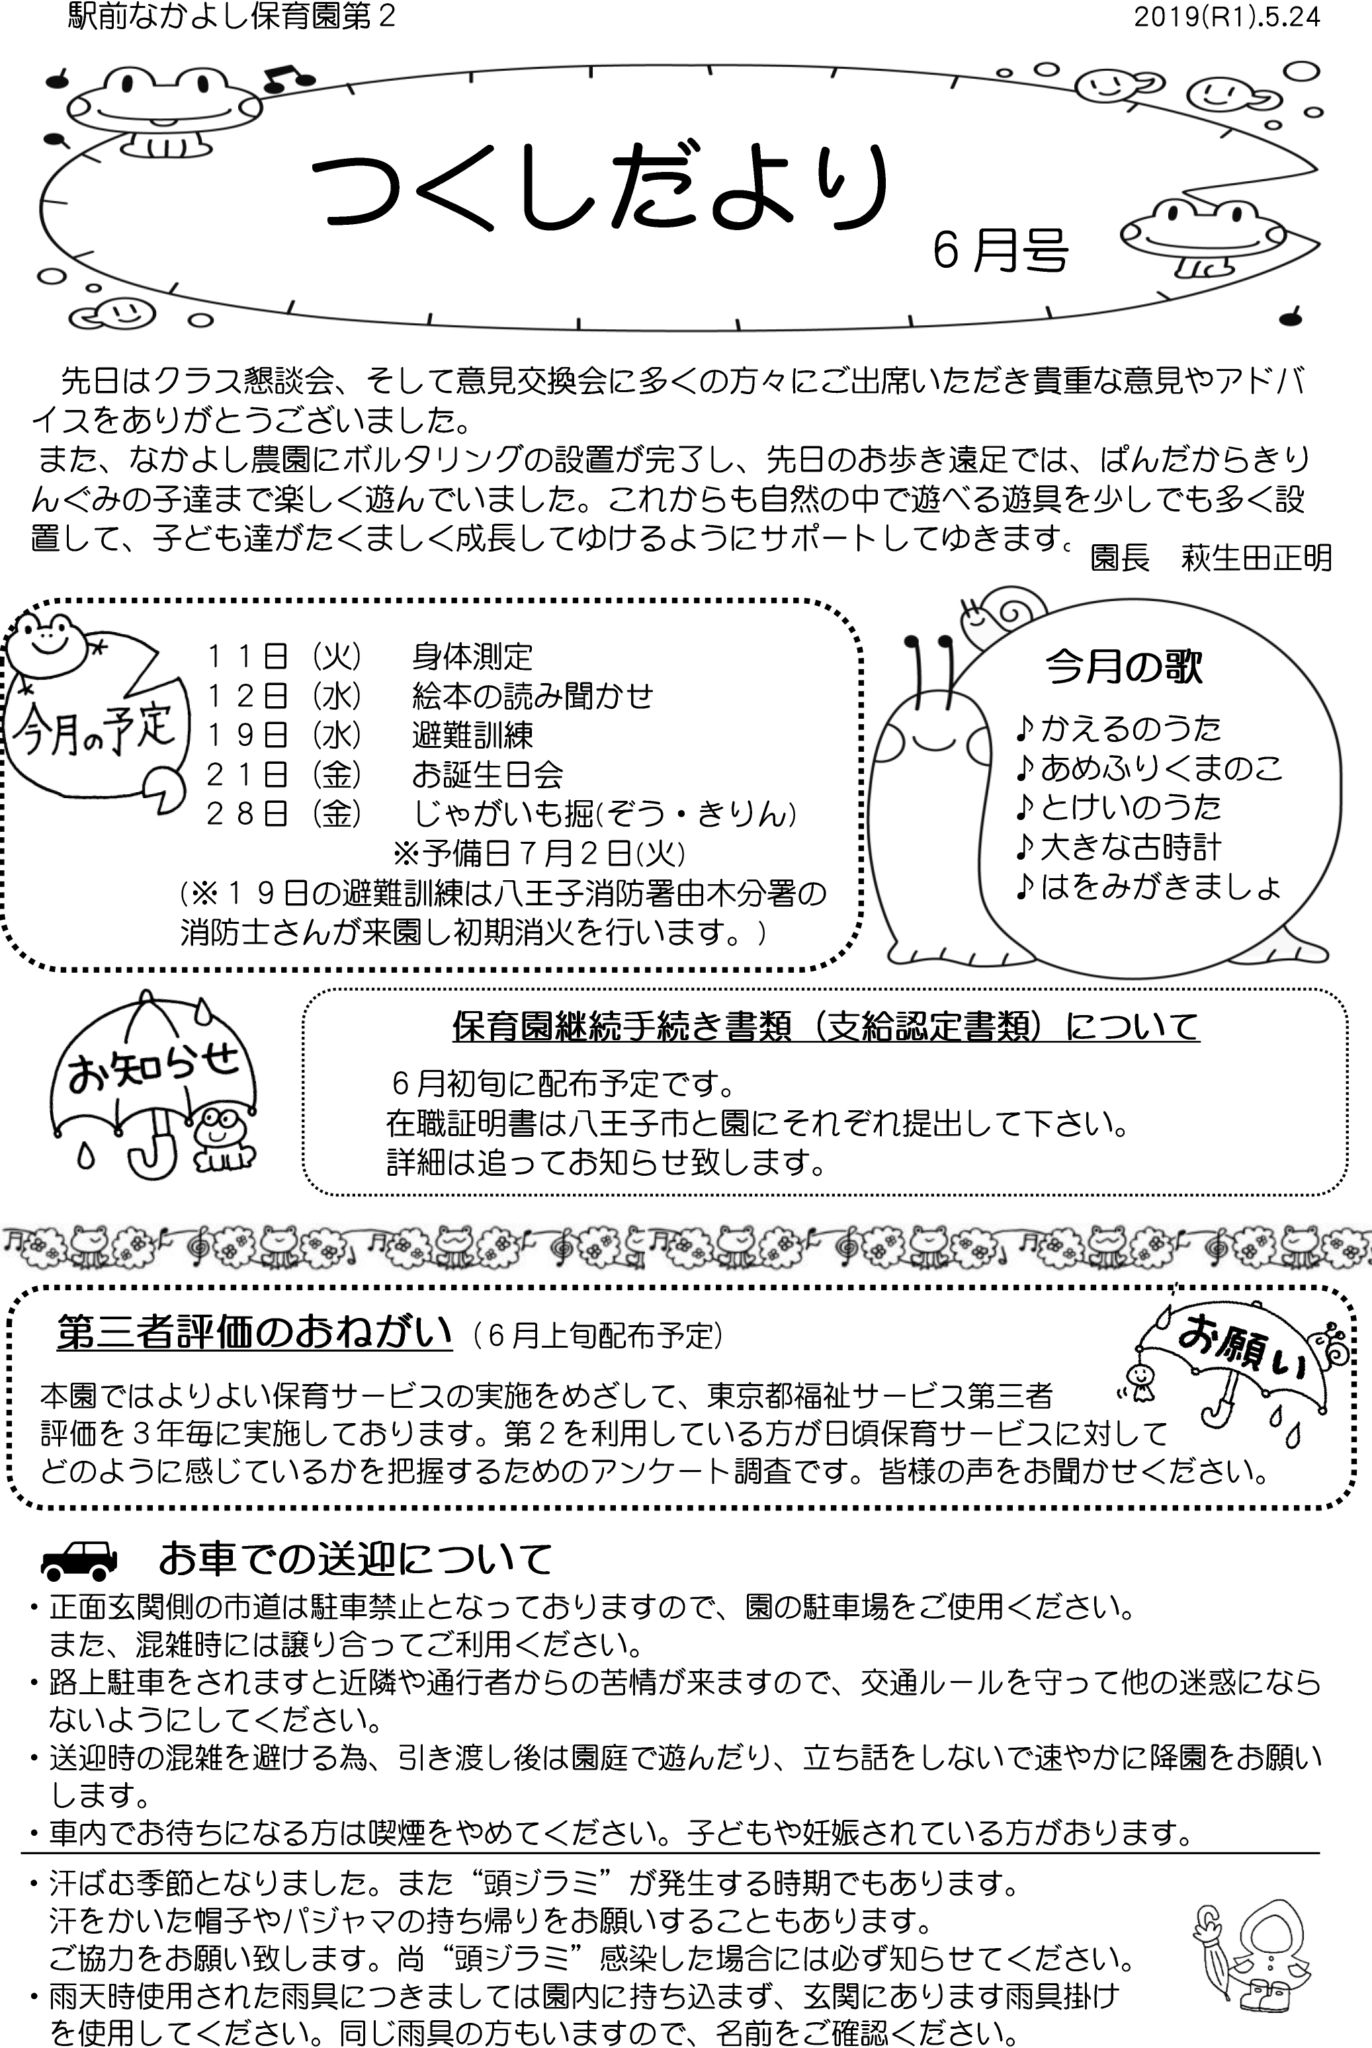 駅前なかよし保育園第２
2019(R1).5.24
つくしだより
６月号
先日はクラス懇談会、そして意見交換会に多くの方々にご出席いただき貴重な意見やアドバ
イスをありがとうございました。
また、なかよし農園にボルタリングの設置が完了し、先日のお歩き遠足では、ぱんだからきり
んぐみの子達まで楽しく遊んでいました。これからも自然の中で遊べる遊具を少しでも多く設
置して、子ども達がたくましく成長してゆけるようにサポートしてゆきます。
園長　萩生田正明
今月の予定
１１日（火）　身体測定
１２日（水）　絵本の読み聞かせ
１９日（水）　避難訓練
２１日（金）　お誕生日会
２８日（金）　じゃがいも掘(ぞう・きりん)
※予備日７月２日(火)
(※１９日の避難訓練は八王子消防署由木分署の
消防士さんが来園し初期消火を行います。)
今月の歌
♪かえるのうた
♪あめふりくまのこ
♪とけいのうた
♪大きな古時計
♪はをみがきましょ
お知らせ
保育園継続手続き書類（支給認定書類）について
６月初旬に配布予定です。
在職証明書は八王子市と園にそれぞれ提出して下さい。
詳細は追ってお知らせ致します。
第三者評価のおねがい（６月上旬配布予定）
お願い
本園ではよりよい保育サービスの実施をめざして、東京都福祉サービス第三者
評価を３年毎に実施しております。第２を利用している方が日頃保育サービスに対して
どのように感じているかを把握するためのアンケート調査です。皆様の声をお聞かせください。
お車での送迎について
・正面玄関側の市道は駐車禁止となっておりますので、園の駐車場をご使用ください。
また、混雑時には譲り合ってご利用ください。
・路上駐車をされますと近隣や通行者からの苦情が来ますので、交通ルールを守って他の迷惑になら
ないようにしてください。
・送迎時の混雑を避ける為、引き渡し後は園庭で遊んだり、立ち話をしないで速やかに降園をお願い
します。
・車内でお待ちになる方は喫煙をやめてください。子どもや妊娠されている方がおります。
・汗ばむ季節となりました。また“頭ジラミ”が発生する時期でもあります。
汗をかいた帽子やパジャマの持ち帰りをお願いすることもあります。
ご協力をお願い致します。尚“頭ジラミ”感染した場合には必ず知らせてください。
・雨天時使用された雨具につきましては園内に持ち込まず、玄関にあります雨具掛け
を使用してください。同じ雨具の方もいますので、名前をご確認ください。